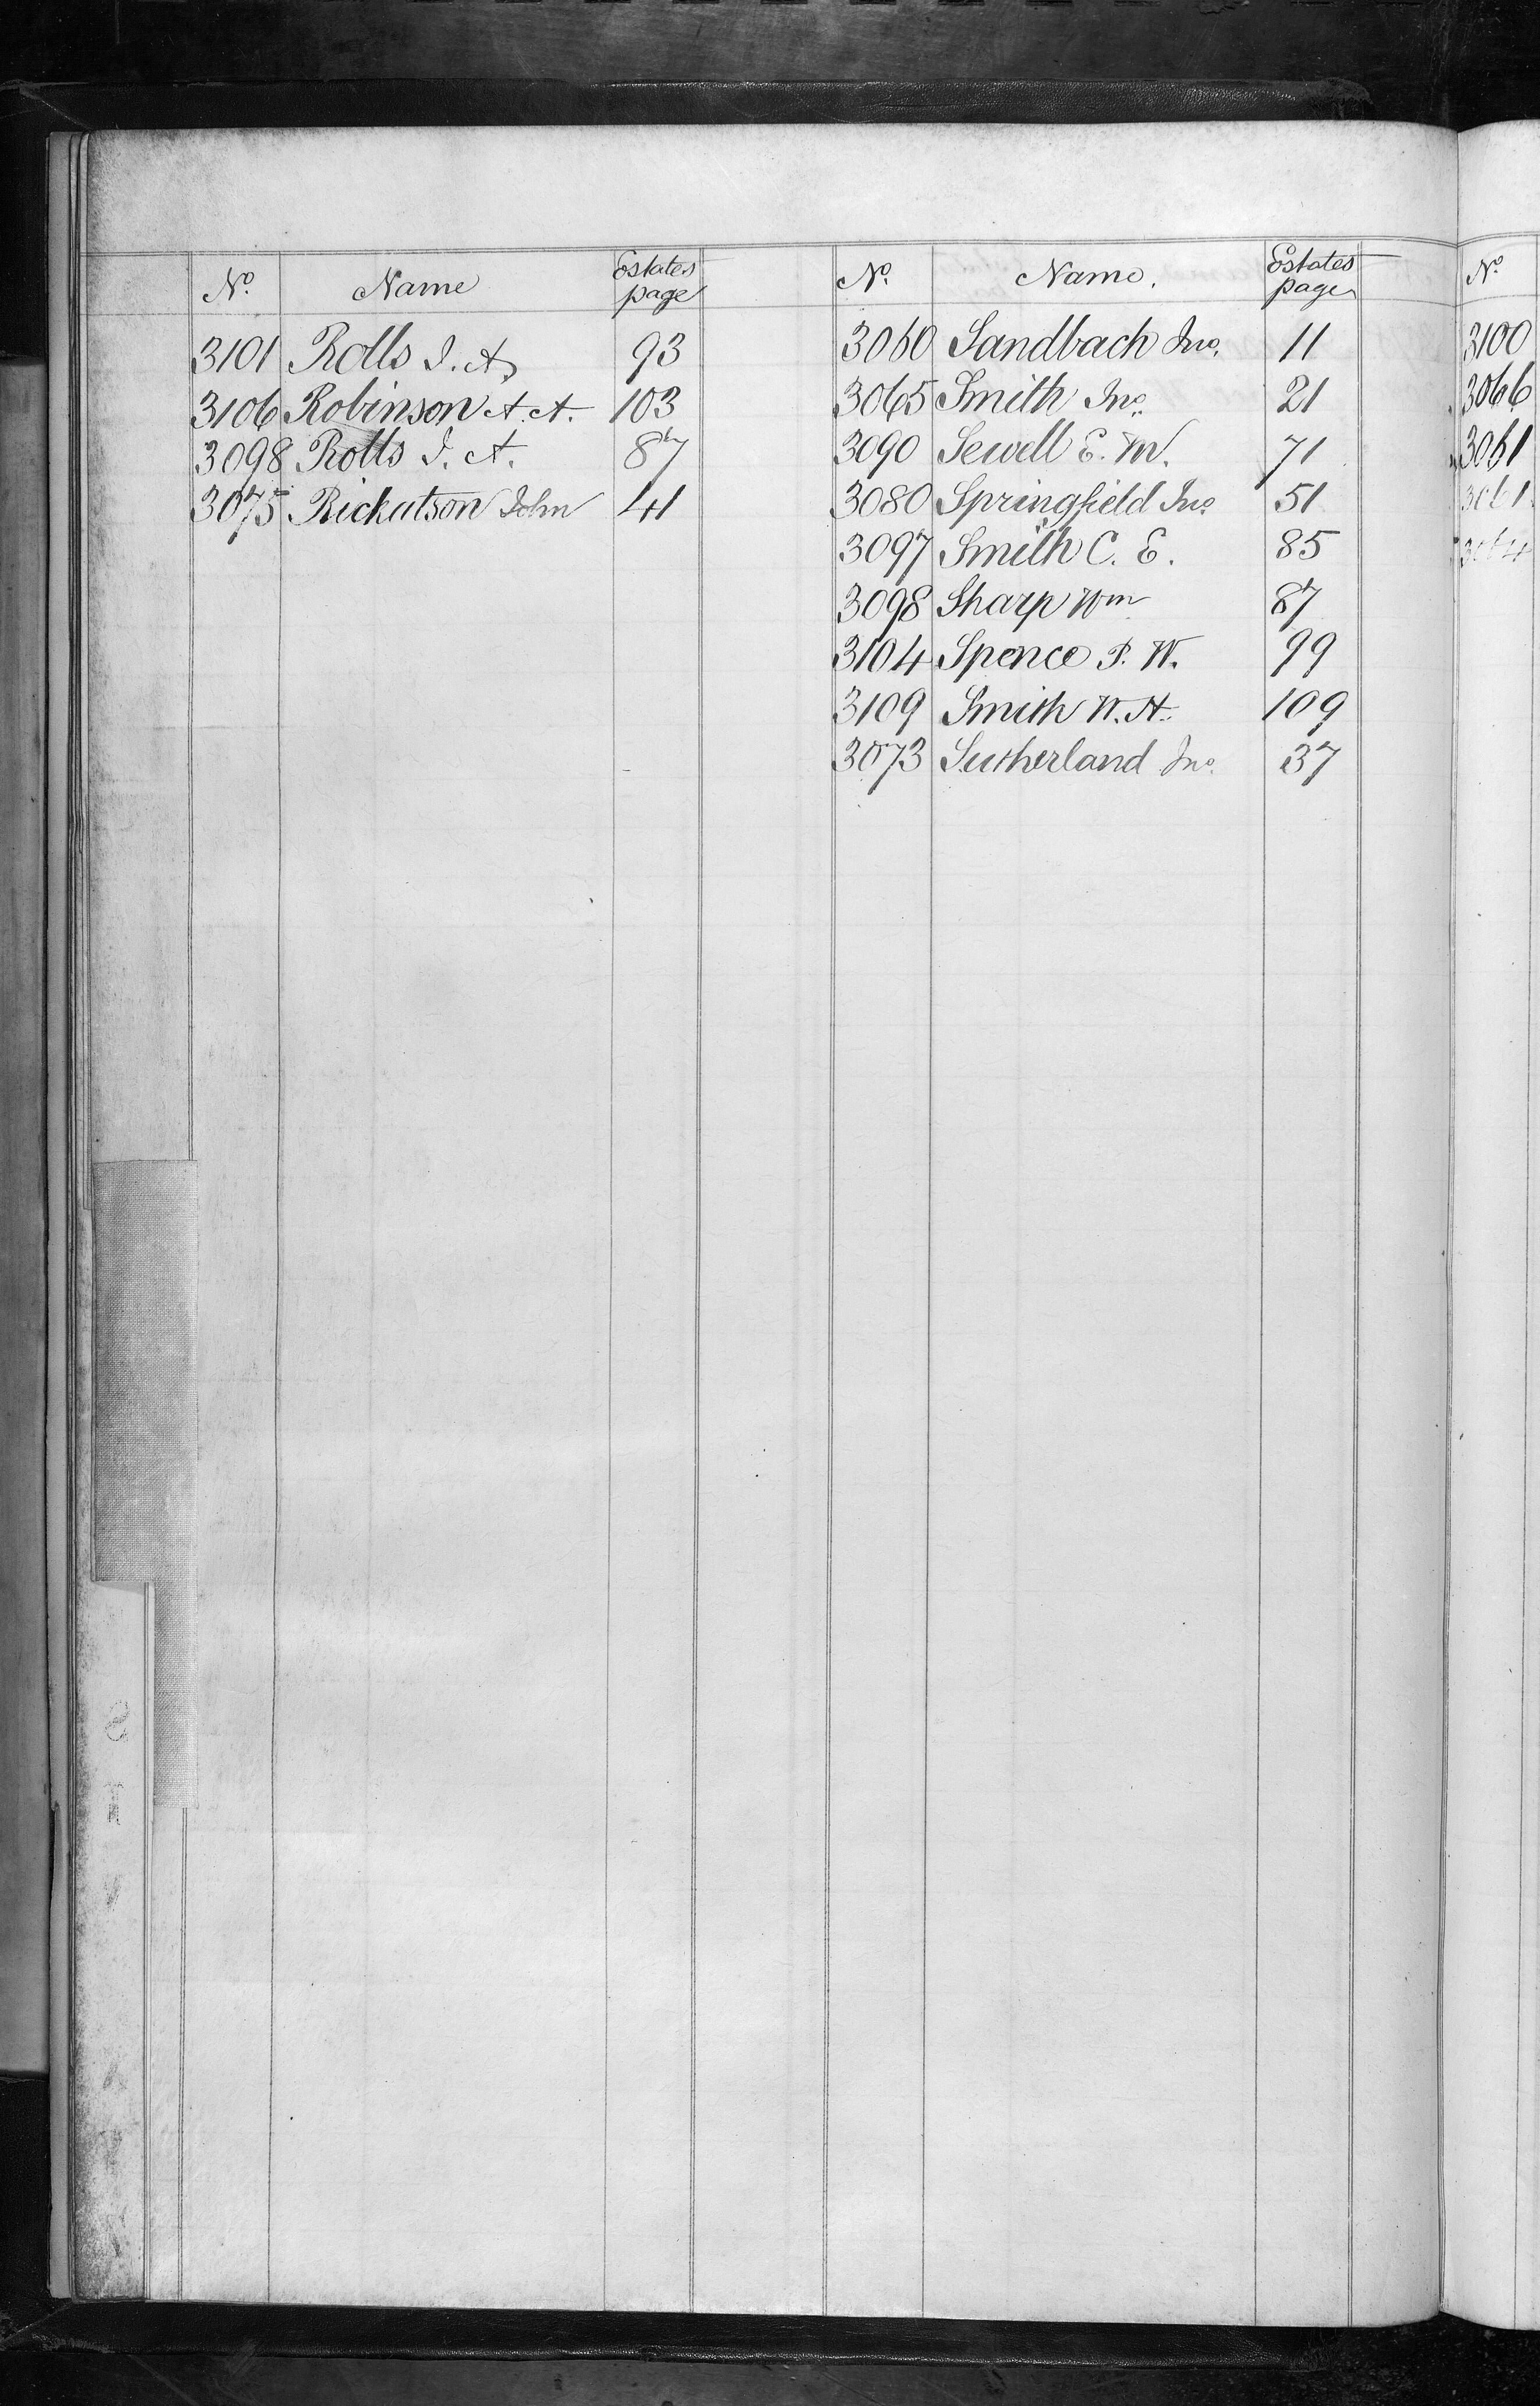 No. Name Estates page
3101 Rolls J. A. 93
3106 Robinson A. A. 103
3098 Rolls J. A. 87
3075 Rickatson John 41
No. Name. Estates page
3060 Sandbach Jno. 11
3065 Smith Jno. 21
3090 Sewell E. W. 71
3080 Springfield Jno. 51
3097 Smith C. E. 85
3098 Sharp Wm 87
3104 Spence P. W. 99
3109 Smith W. H. 109
3073 Sutherland Jno. 37
No.
3100
3066
3061
3061
3064
S
T
V